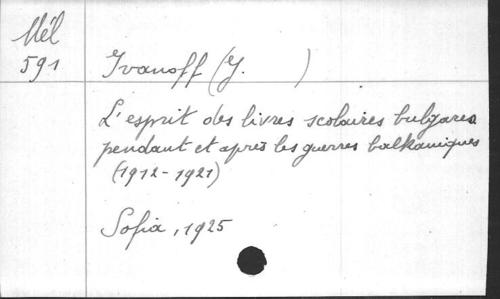 Mél
591
Ivanoff (Y. )
L'esprit des livres scolaires bulgares
pendant et après les guerres balkaniques
(1912-1921)
Sofia, 1925